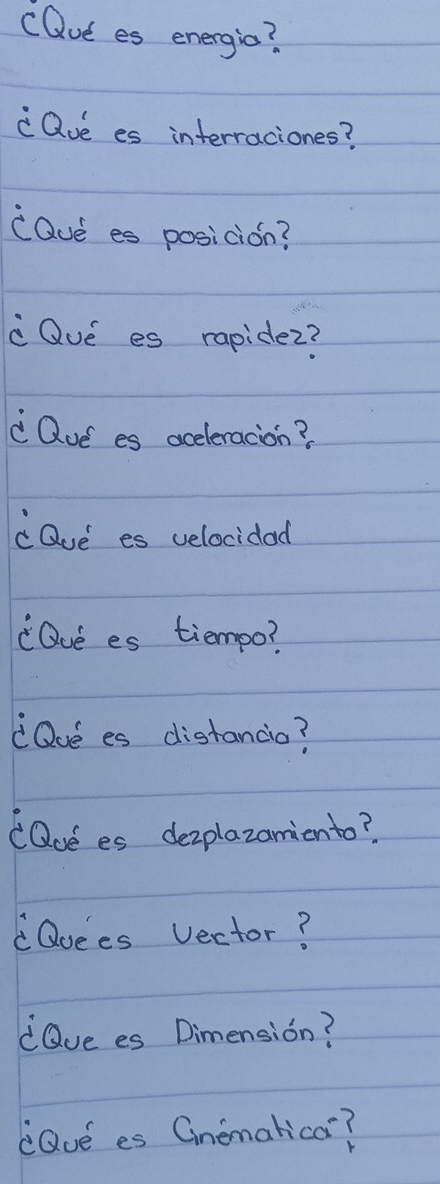 ¿Qué es energia?
¿Qué es interraciones?
¿Qué es posición?
¿Qué es rapidez?
¿Qué es aceleración?
¿Qué es velocidad
¿Qué es tiempo?
¿Qué es distancia?
¿Qué es dezplazamiento?
¿Qué es Vector?
¿Que es Dimensión?
¿Qué es Cinématica?